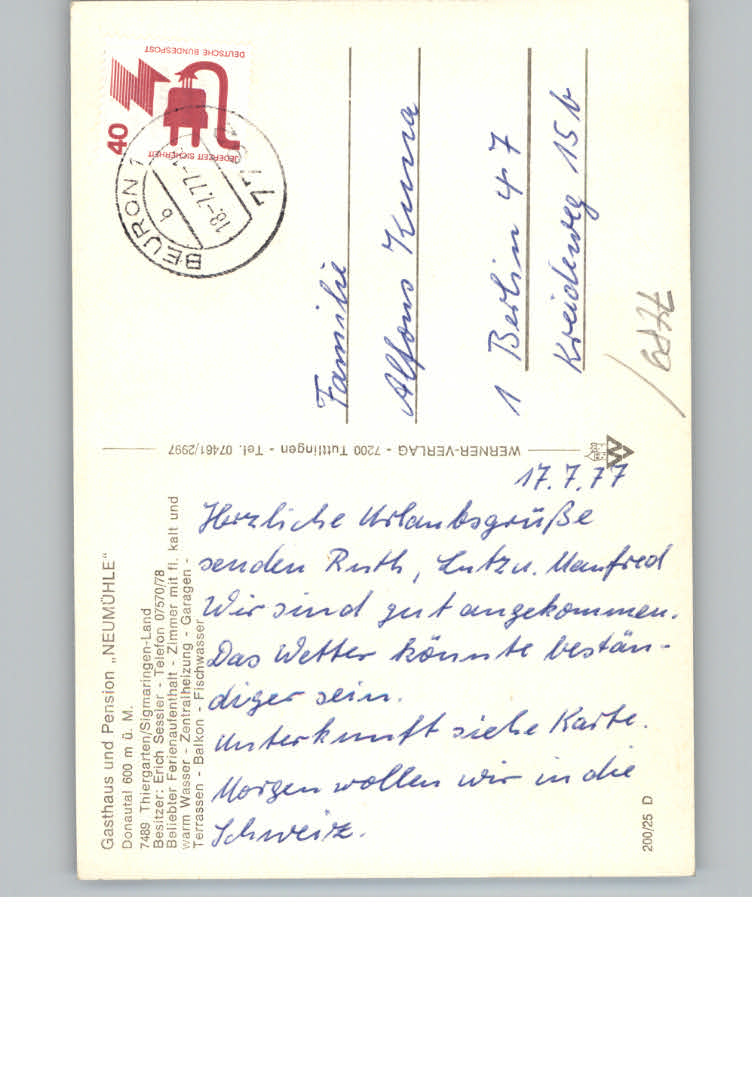 Gasthaus und Pension „NEUMÜHLE“
Donautal 600 m ü. M.
7489 Thiergarten/Sigmaringen-Land
Besitzer: Erich Sessler - Telefon 07570/78
Beliebter Ferienaufenthalt - Zimmer mit fl. kalt und
warm Wasser - Zentralheizung - Garagen -
Terrassen - Balkon - Fischwasser
17.7.77
Herzliche Urlaubsgrüße
senden Ruth, Lutz u. Manfred
Wir sind gut angekommen.
Das Wetter könnte bestän-
diger sein.
Unterkunft siehe Karte.
Morgen wollen wir in die
Schweiz.
200/25 D
WERNER-VERLAG - 7200 Tuttlingen - Tel. 07461/2997
DEUTSCHE BUNDESPOST
40
JEDERZEIT SICHERHEIT
BEURON 1
b
18.-7.77
Familie
Alfons Kunna
1 Berlin 47
Kreideweg 15 b